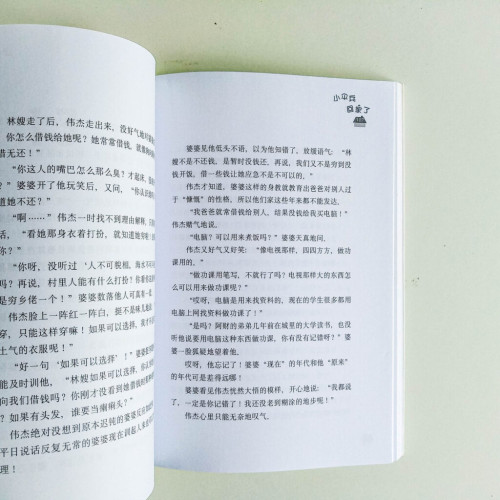 林嫂走了后，伟杰走出来，没好气地
你怎么借钱给她呢？她常常借钱，
借无还！”
“你这人的嘴巴怎么那么臭？才起床，
？”婆婆开了他玩笑后，又问，“你
道她不还？”
“啊……”伟杰一时找不到理由解释，
“看她那身衣着打扮，就知道她穷
你？”
“你呀，没听过‘人不可貌相，海水不
”再说，村里人能有什么打扮？你看
是穷乡佬一个！”婆婆数落他人可真有一
伟杰脸上一阵红一阵白，挺不是味儿地
穿，只能这样穿嘛！如果可以选择，我才
土气的衣服呢！”
“好一句‘如果可以选择’！”婆婆
能及时训他，“林嫂如果可以选择，你
向我们借钱吗？你刚才没看到她借钱
？如果有头发，谁要当瘌痢头？”
伟杰绝对没想到原本迟钝的婆婆
平日说话反复无常的婆婆现在训起人来
理！
小伞兵
婆婆见他低头不语，以为他知错了，放缓语气：“林
嫂不是不还钱，是暂时没钱还。再说，我们又不是穷到没
钱开饭，借一些钱让她应急不是不可以的。”
伟杰才知道，婆婆这样的身教就教育出爸爸对别人过
于“慷慨”的性格，所以他们家这些年来都不能发达。
“我爸爸就常借钱给别人，结果没钱给我买电脑！”
伟杰赌气地说。
“电脑？可以用来煮饭吗？”婆婆天真地问。
伟杰又好气又好笑：“像电视那样，四四方方，做功
课用的。”
“做功课用笔写，不就行了吗？电视那样大的东西怎
么可以用来做功课呢？”
“哎呀，电脑是用来找资料的，现在的学生很多都用
电脑上网找资料做功课了！”
“是吗？阿财的弟弟几年前在城里的大学读书，也没
听他说要用电脑这种东西做功课，你有没记错呀？”婆
婆一脸狐疑地望着他。
哎呀，他忘记了！婆婆“现在”的年代和他“原来”
的年代可是差得远哪！
婆婆看见伟杰恍然大悟的模样，开心地说：“我都说
了，一定是你记错了！我还没老到糊涂的地步呢！”
伟杰心里只能无奈地叹气。